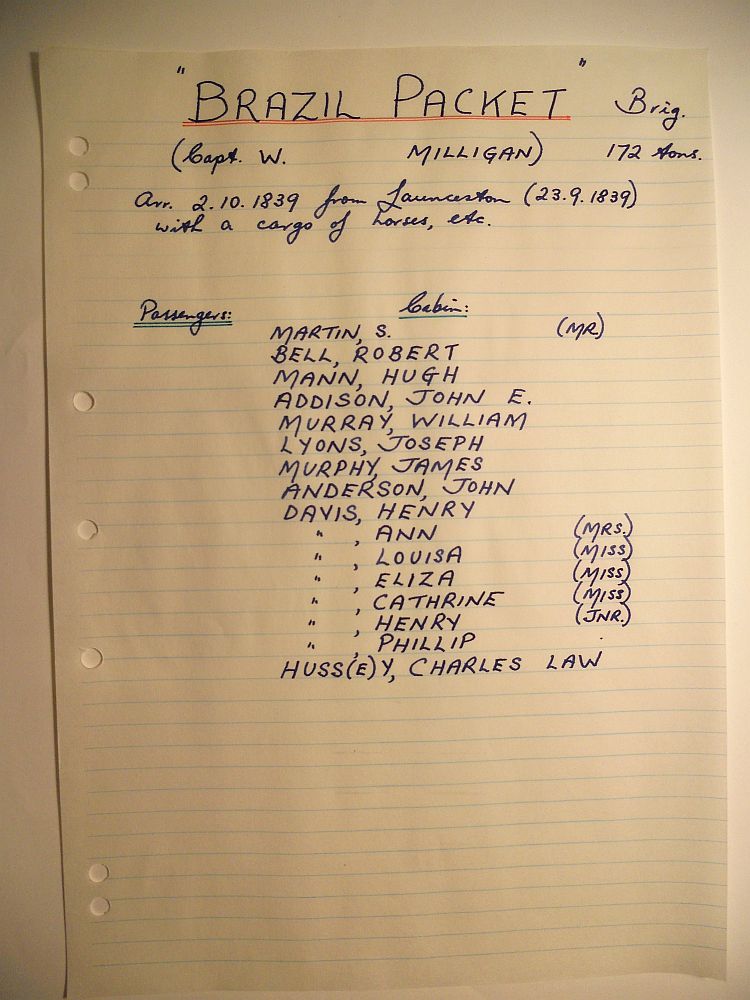 "BRAZIL PACKET" Brig.
(Capt. W. MILLIGAN) 172 tons.
Arr. 2.10.1839 from Launceston (23.9.1839)
with a cargo of horses, etc.
Passengers: Cabin:
MARTIN, S. (MR)
BELL, ROBERT
MANN, HUGH
ADDISON, JOHN E.
MURRAY, WILLIAM
LYONS, JOSEPH
MURPHY, JAMES
ANDERSON, JOHN
DAVIS, HENRY
" , ANN (MRS.)
" , LOUISA (MISS)
" , ELIZA (MISS)
" , CATHRINE (MISS)
" , HENRY (JNR.)
" , PHILLIP
HUSS(E)Y, CHARLES LAW